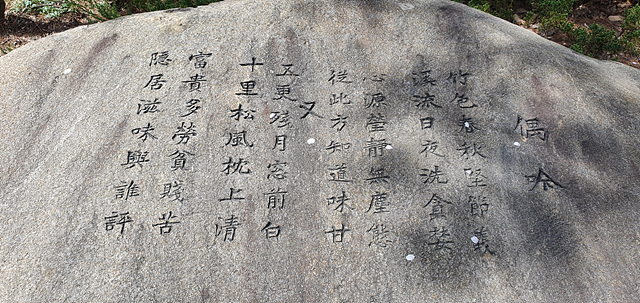 偶吟
竹色春秋堅節義
溪流日夜洗貪婪
心源瑩靜無塵態
從此方知道味甘
又
五更殘月窓前白
十里松風枕上清
富貴多勞貧賤苦
隱居滋味與誰評